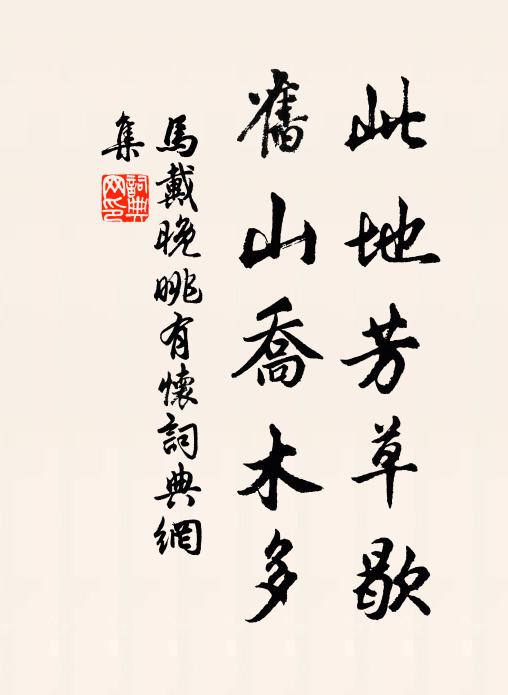 此地芳草歇
舊山喬木多
馬戴晚眺有懷詞典網
集
詞典網印